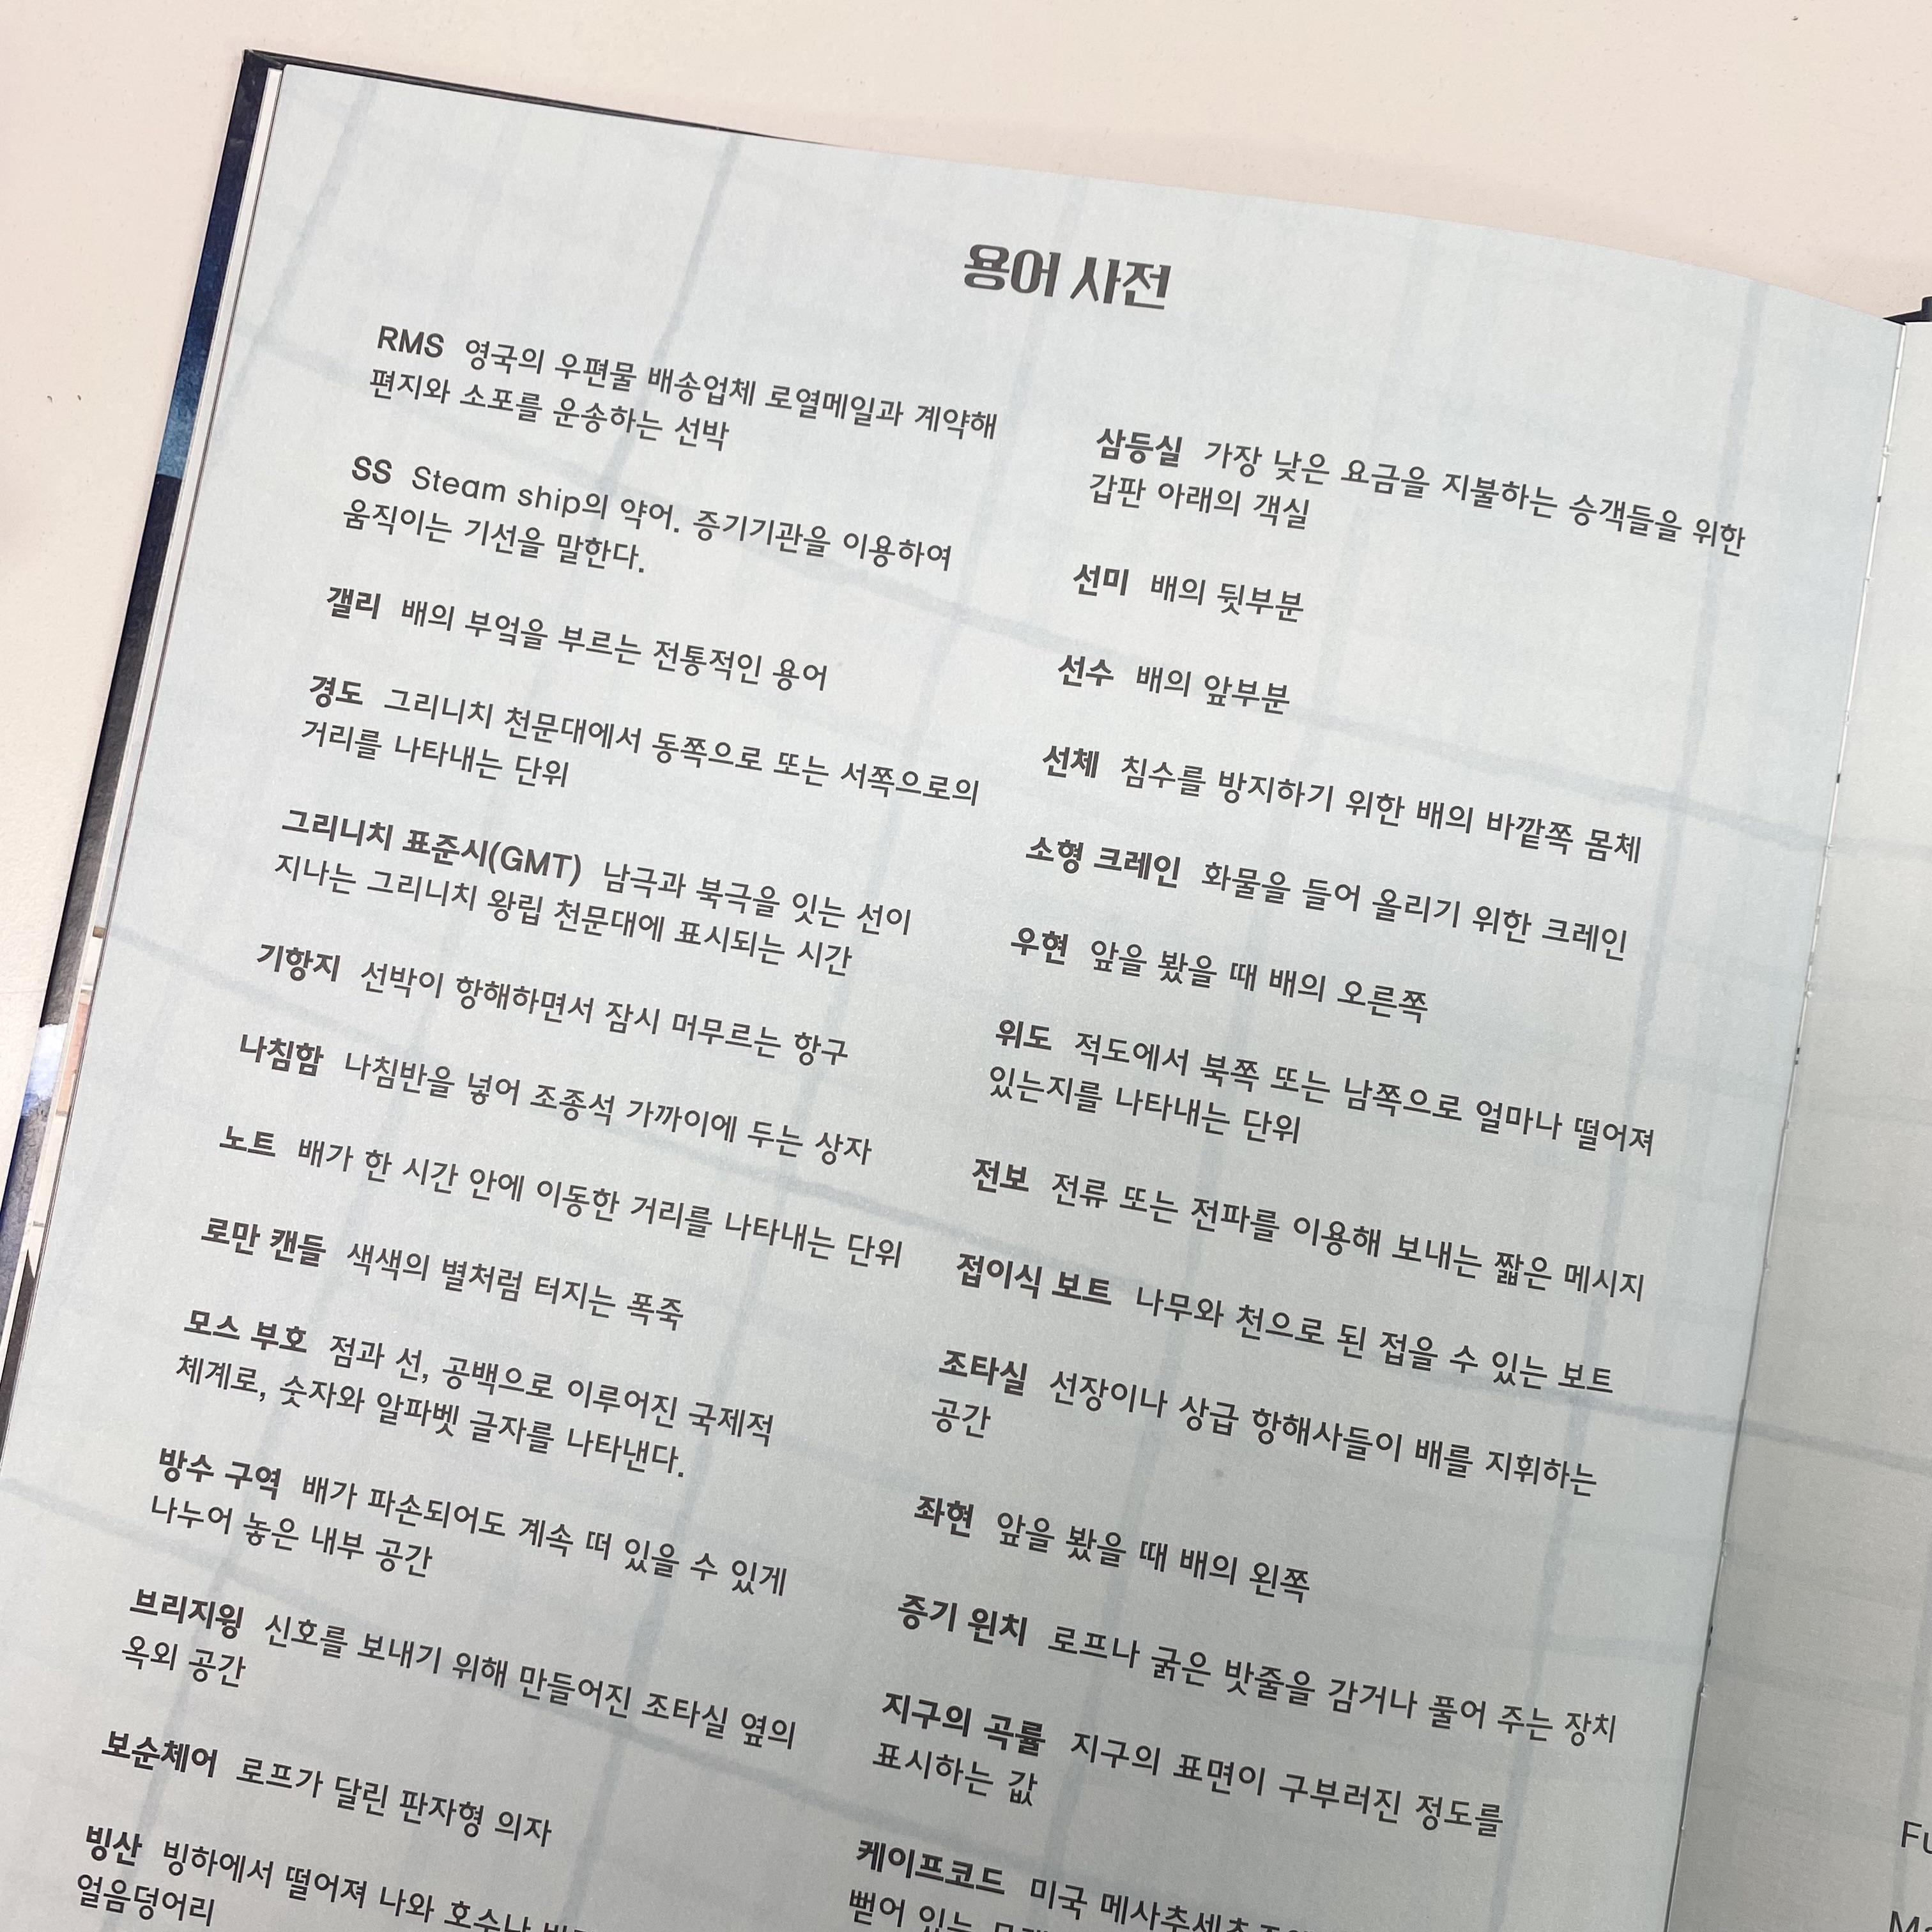 용어 사전
RMS 영국의 우편물 배송업체 로열메일과 계약해
편지와 소포를 운송하는 선박
SS Steam ship의 약어. 증기기관을 이용하여
움직이는 기선을 말한다.
갤리 배의 부엌을 부르는 전통적인 용어
경도 그리니치 천문대에서 동쪽으로 또는 서쪽으로의
거리를 나타내는 단위
그리니치 표준시(GMT) 남극과 북극을 잇는 선이
지나는 그리니치 왕립 천문대에 표시되는 시간
기항지 선박이 항해하면서 잠시 머무르는 항구
나침함 나침반을 넣어 조종석 가까이에 두는 상자
노트 배가 한 시간 안에 이동한 거리를 나타내는 단위
로만 캔들 색색의 별처럼 터지는 폭죽
모스 부호 점과 선, 공백으로 이루어진 국제적
체계로, 숫자와 알파벳 글자를 나타낸다.
방수 구역 배가 파손되어도 계속 떠 있을 수 있게
나누어 놓은 내부 공간
브리지윙 신호를 보내기 위해 만들어진 조타실 옆의
옥외 공간
보순체어 로프가 달린 판자형 의자
빙산 빙하에서 떨어져 나와 호수나
얼음덩어리
삼등실 가장 낮은 요금을 지불하는 승객들을 위한
갑판 아래의 객실
선미 배의 뒷부분
선수 배의 앞부분
선체 침수를 방지하기 위한 배의 바깥쪽 몸체
소형 크레인 화물을 들어 올리기 위한 크레인
우현 앞을 봤을 때 배의 오른쪽
위도 적도에서 북쪽 또는 남쪽으로 얼마나 떨어져
있는지를 나타내는 단위
전보 전류 또는 전파를 이용해 보내는 짧은 메시지
접이식 보트 나무와 천으로 된 접을 수 있는 보트
조타실 선장이나 상급 항해사들이 배를 지휘하는
공간
좌현 앞을 봤을 때 배의 왼쪽
증기 윈치 로프나 굵은 밧줄을 감거나 풀어 주는 장치
지구의 곡률 지구의 표면이 구부러진 정도를
표시하는 값
케이프코드 미국 메사추세츠
뻗어 있는